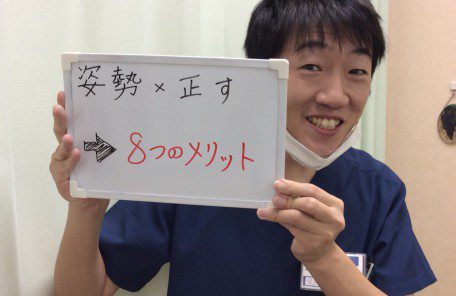 姿勢×正す
➔8つのメリット